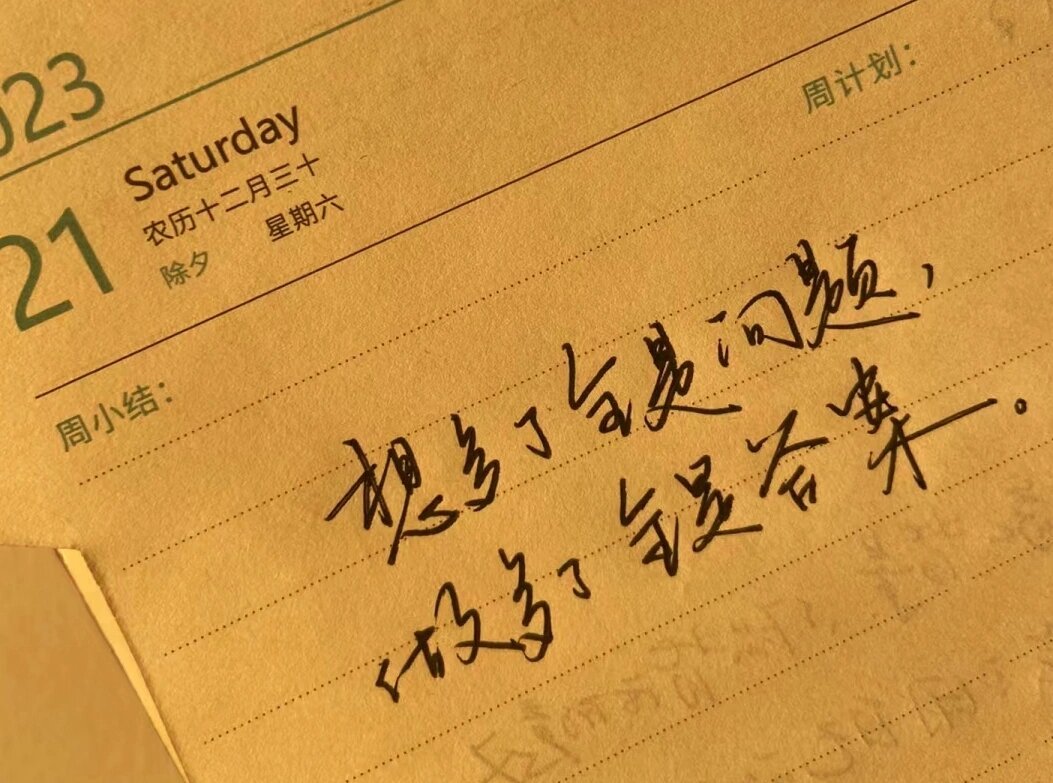 023
21
Saturday
农历十二月三十
除夕 星期六
周计划：
周小结：
想多了全是问题，
做多了全是答案。